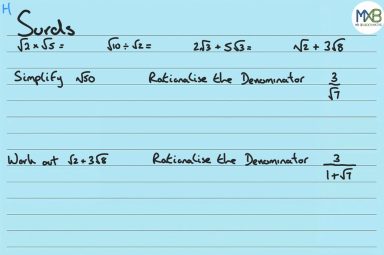 H
Surds
√2 × √5 = √10 ÷ √2 = 2√3 + 5√3 = √2 + 3√8
Simplify √50 Rationalise the Denominator 3/√7
Work out √2 + 3√8 Rationalise the Denominator 3/(1+√7)
MXB